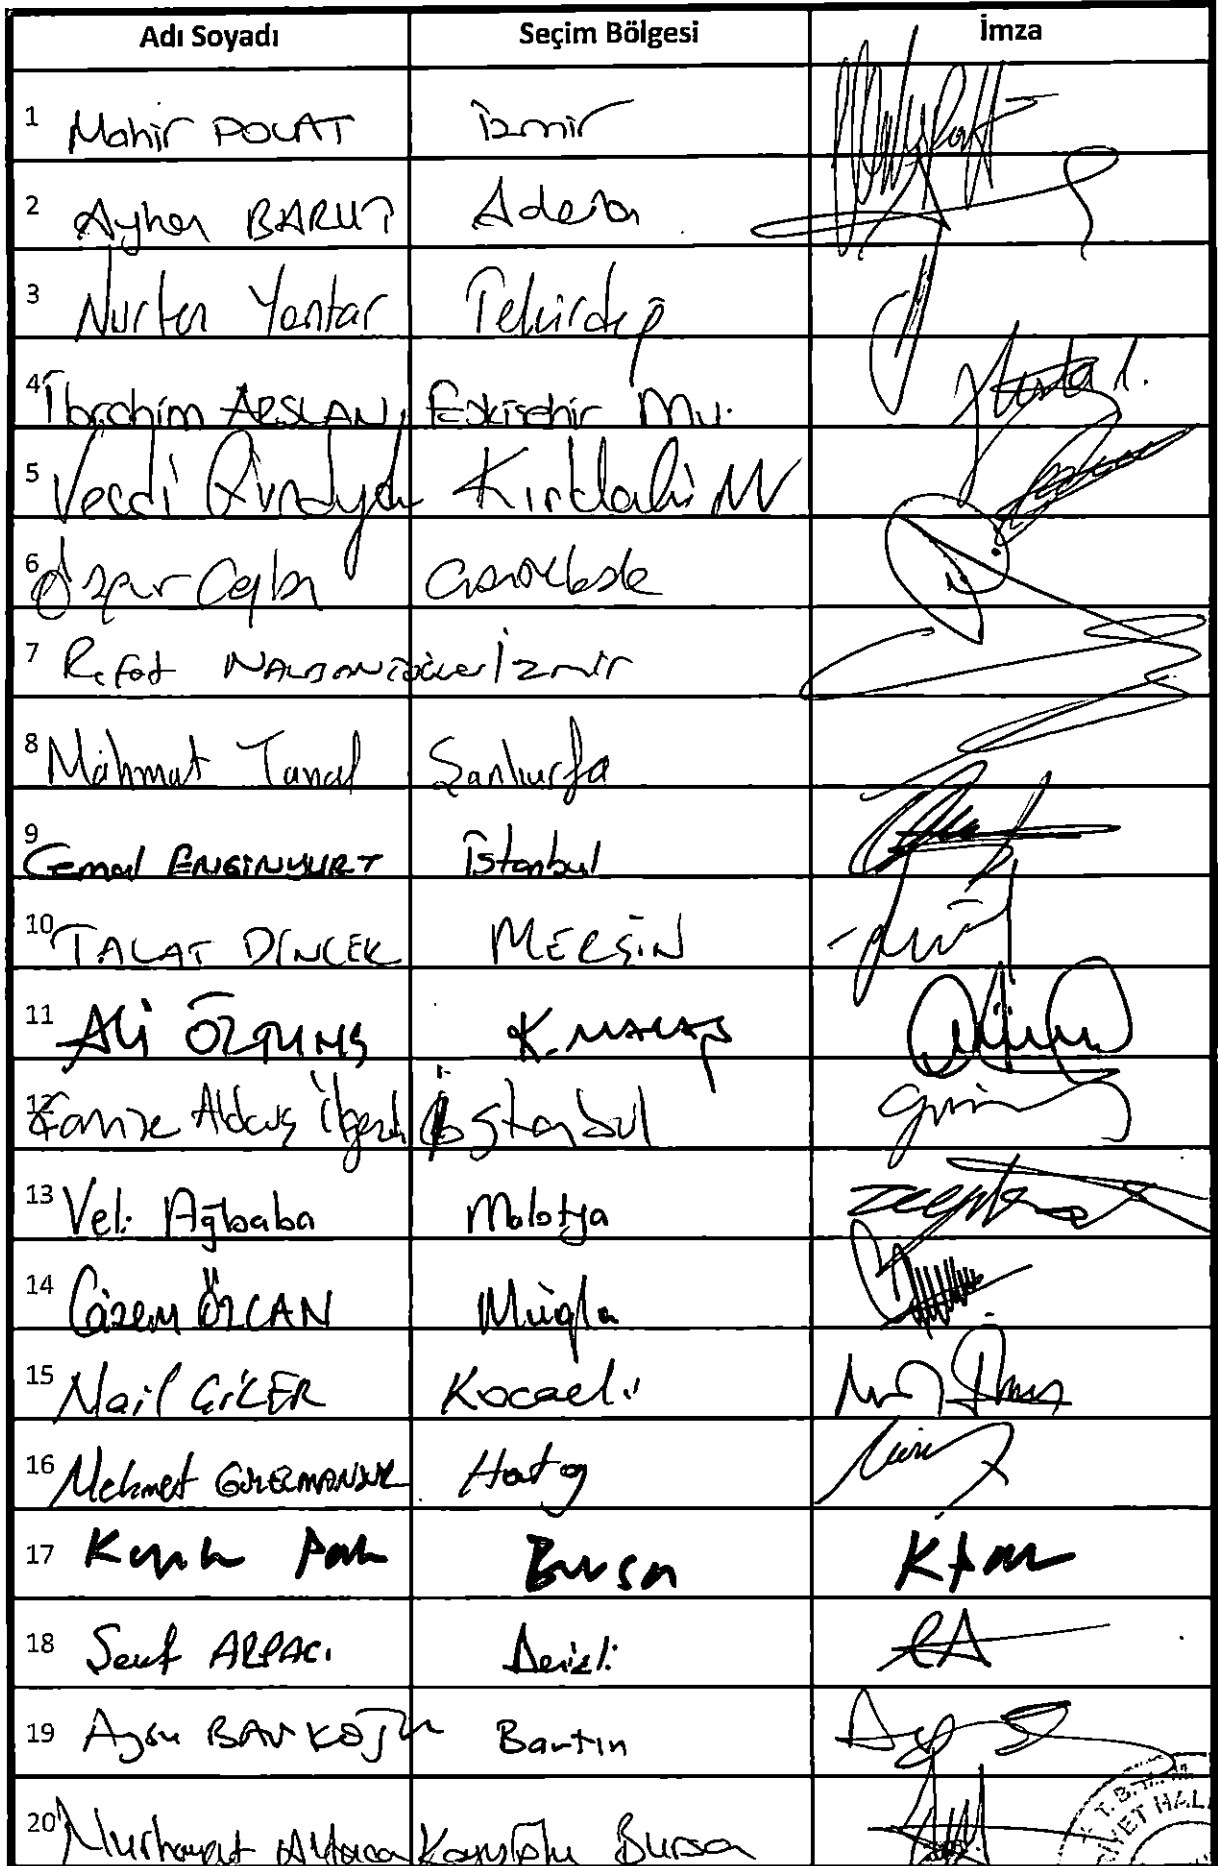 Adı Soyadı Seçim Bölgesi İmza
1 Mahir POLAT İzmir
2 Ayhan BARUT Adana
3 Nurten Yontar Tekirdağ
4 İbrahim ARSLAN Eskişehir Mv.
5 Vecdi Gündoğdu Kırklareli MV
6 Özgür Ceylan Çanakkale
7 Rıfat NALBANTOĞLU İzmir
8 Mahmut Tanal Şanlıurfa
9 Cemal ENGİNYURT İstanbul
10 TALAT DİNÇER MERSİN
11 Ali ÖZTUNÇ K.MARAŞ
12 Gamze Akkuş İlgezdi İstanbul
13 Veli Ağbaba Malatya
14 Gizem ÖZCAN Muğla
15 Nail ÇİLER Kocaeli
16 Mehmet GÜZELMANSUR Hatay
17 Kayıhan Pala Bursa
18 Şeref ARPACI Denizli
19 Aysu BANKOĞLU Bartın
20 Nurhayat Altaca Kayışoğlu Bursa
T.B.M.M.